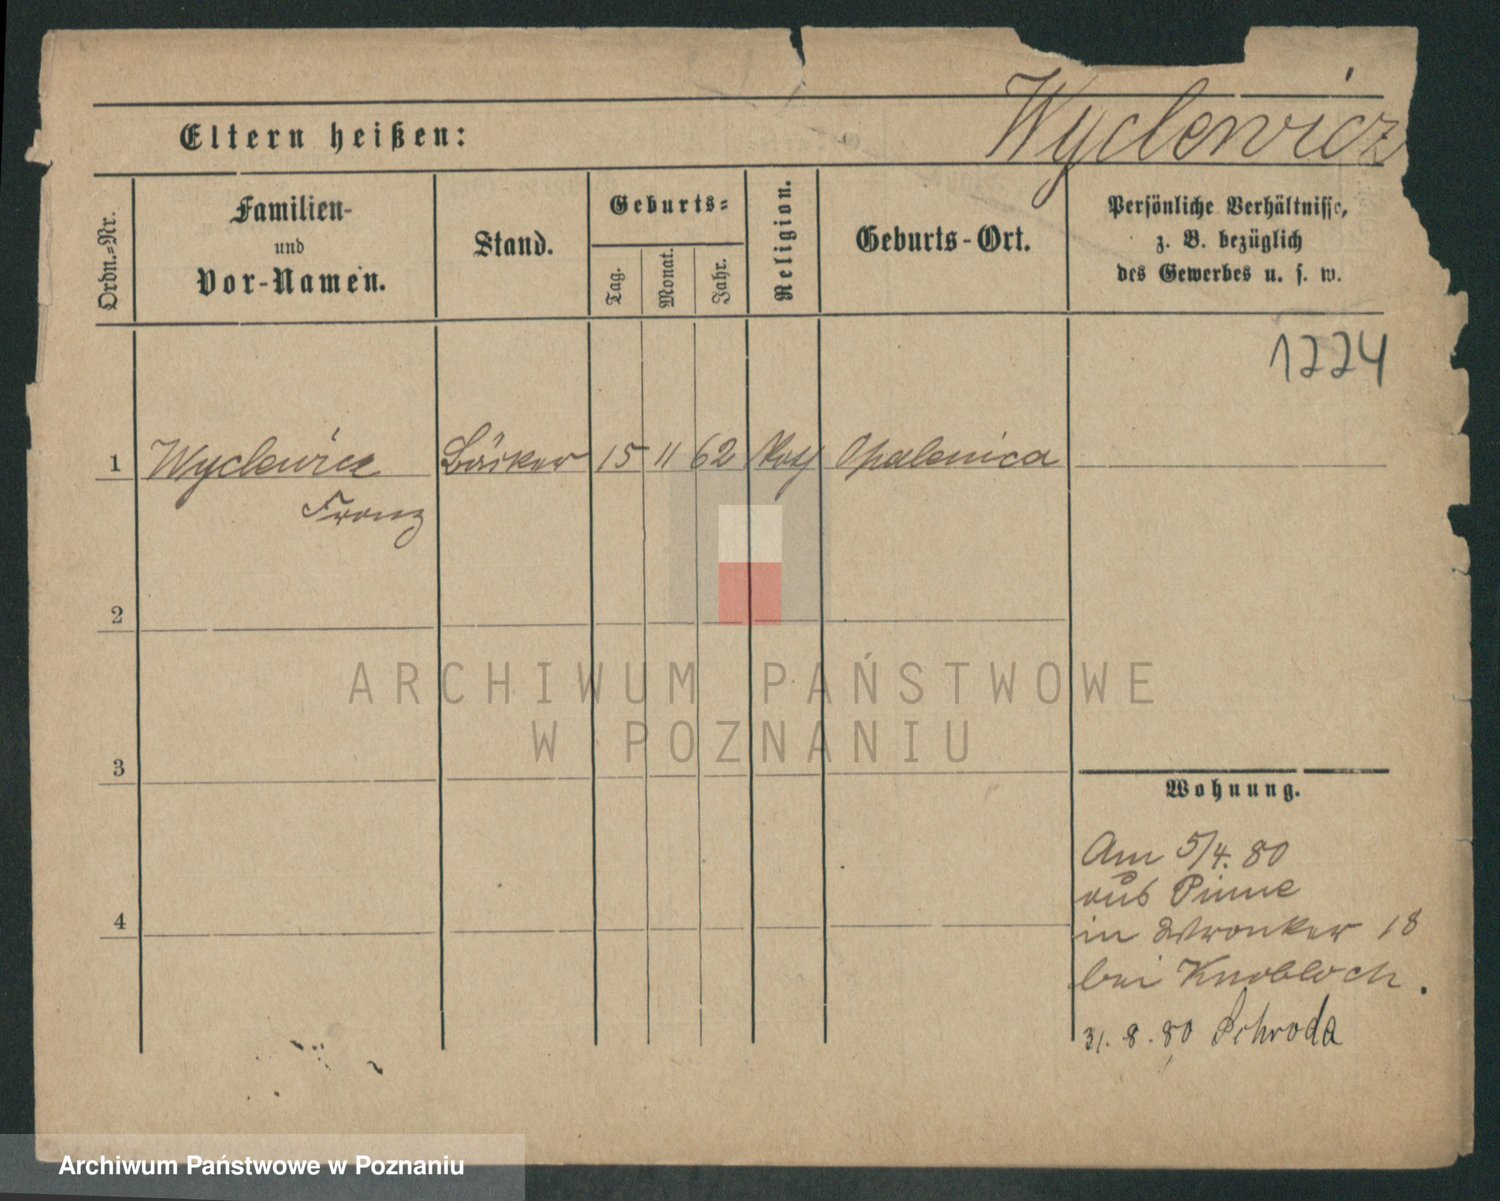 Wyclewicz
Eltern heißen:
Ordn.-Nr.
Familien-
und
Vor-Namen.
Stand.
Geburts-
Tag.
Monat.
Jahr.
Religion.
Geburts-Ort.
Persönliche Verhältnisse,
z. B. bezüglich
des Gewerbes u. s. w.
1224
1 Wyclewicz Bäcker 15 11 62 Opalenica
Franz
2
3
4
Wohnung.
Am 5/4. 80
aus Pinne
in Wronker 18
bei Knobloch.
31. 8. 80 Schroda
ARCHIWUM PAŃSTWOWE
W POZNANIU
Archiwum Państwowe w Poznaniu